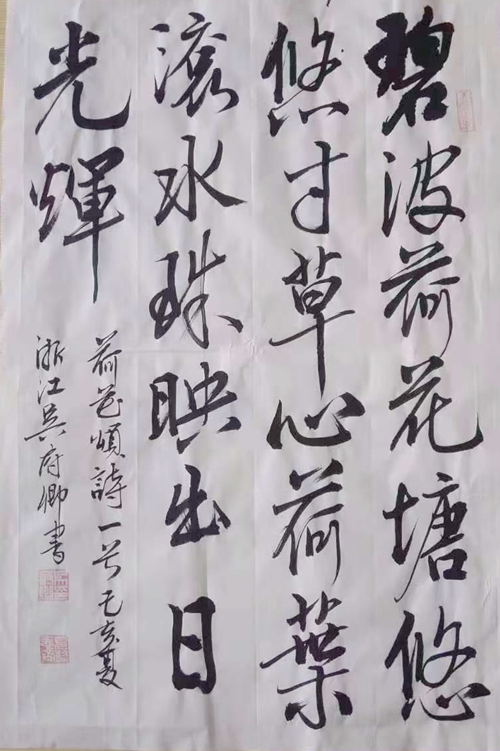 碧波荷花塘悠
悠寸草心荷葉
滚水珠映出日
光煇
荷花頌詩一首己亥夏
浙江吳府卿書